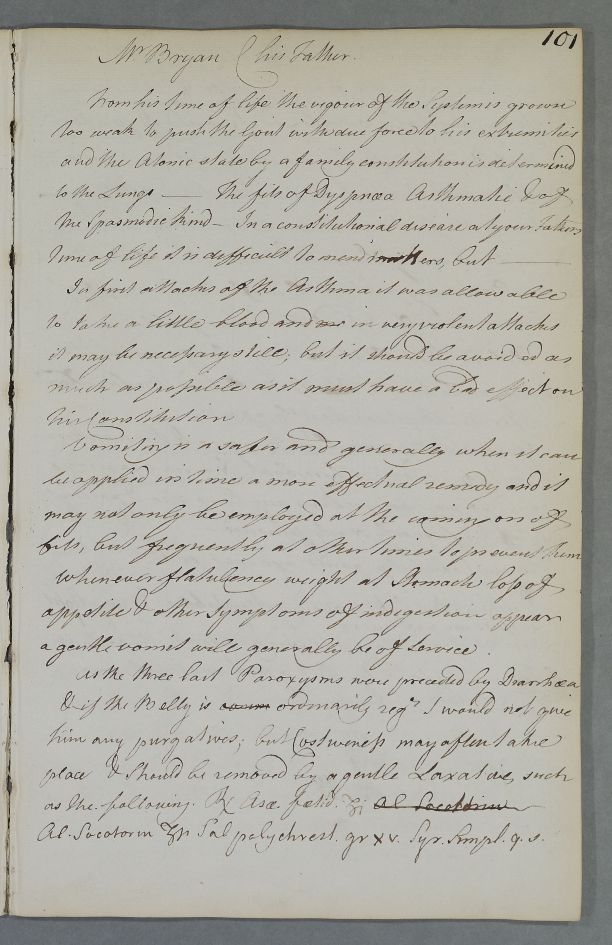 101
Mr Bryan ( his Father.
From his time of life the vigour of the System is grown
too weak to push the Gout with due force to his extremities
and the Atonic state by a family constitution is determined
to the Lungs — The fits of Dyspnœa Asthmatic & of
the Spasmodic kind – In a constitutional disease at your Fathers
time of life it is difficult to mend matters, but —
In first attacks of the Asthma it was allowable
to take a little blood and in very violent attacks
it may be necessary still; but it should be avoided as
much as possible as it must have a bad effect on
his Constitution
Vomiting is a safer and generally when it can
be applied in time a more effectual remedy and it
may not only be employed at the coming on of
fits, but frequently at other times to prevent them
Whenever flatulency weight at Stomach loss of
appetite & other Symptoms of indigestion appear
a gentle vomit will generally be of Service.
As the three last Paroxysms were preceded by Diarrhœa
& if the Belly is ordinarily regr. I would not give
him any purgatives; but Costiveness may often take
place & should be removed by a gentle Laxative, such
as the following. ℞ Asæ fœtid. ʒi Al Socotorin
Al. Socotorin ʒſs Sal polychrest. gr xv. Syr. Simpl. q. s.